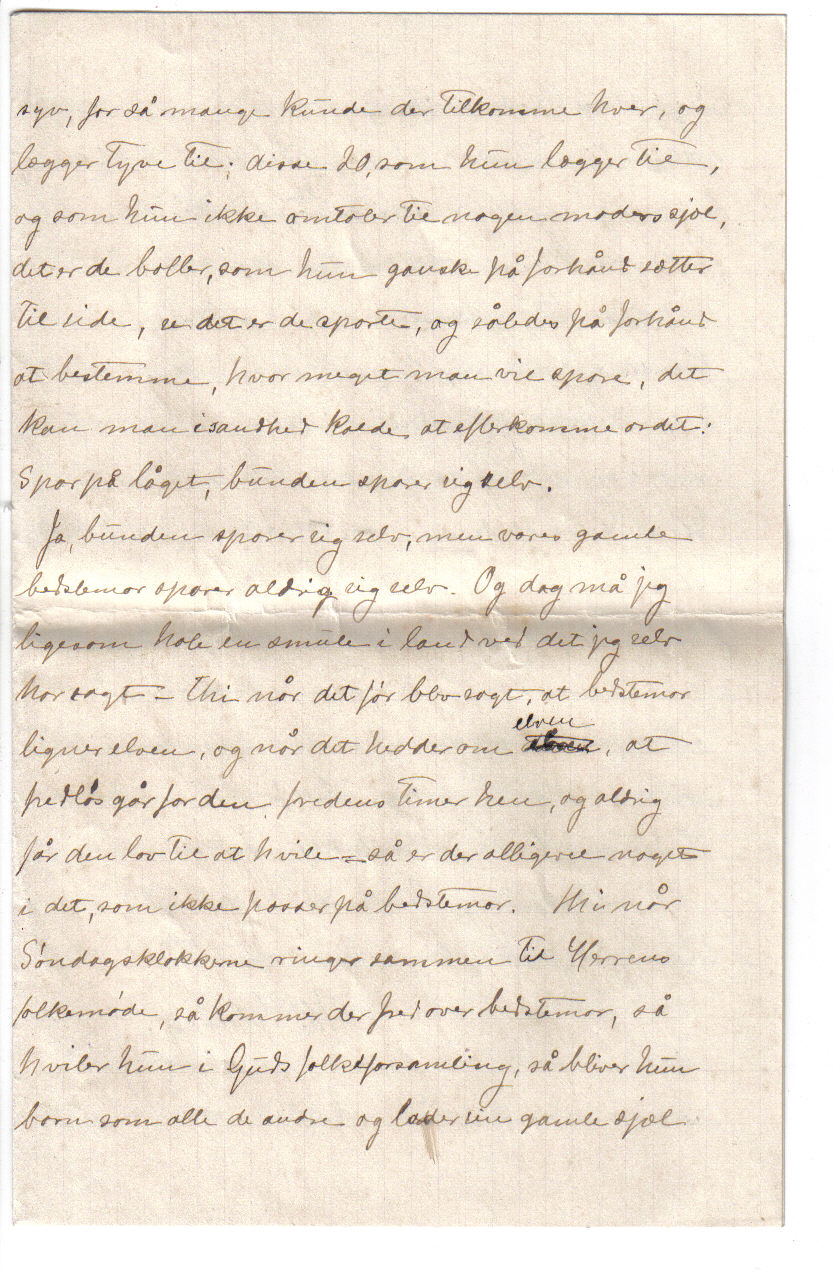 syv, for så mange kunde der tilkomme hver, og
lægger tyve til; disse 20, som hun lægger til,
og som hun ikke omtaler til nogen moders sjæl,
det er de boller, som hun ganske på forhånd sætter
til side, se det er de sparte, og således på forhånd
at bestemme, hvor meget man vil spare, det
kan man i sandhed kalde at efterkomme ordet:
Spar på låget, bunden sparer sig selv.
Ja, bunden sparer sig selv, men vores gamle
bedstemor sparer aldrig sig selv. Og dog må jeg
ligesom hale en smule i land ved det jeg selv
har sagt – thi når det før blev sagt, at bedstemor
ligner elven, og når det hedder om elven, at
fredløs går for den fredens timer hen, og aldrig
får den lov til at hvile – så er der alligevel noget
i det, som ikke passer på bedstemor. Thi når
Søndagsklokkerne ringer sammen til Herrens
folkemøde, så kommer der fred over bedstemor, så
hviler hun i Guds folkeforsamling, så bliver hun
barn som alle de andre og lader sin gamle sjæl